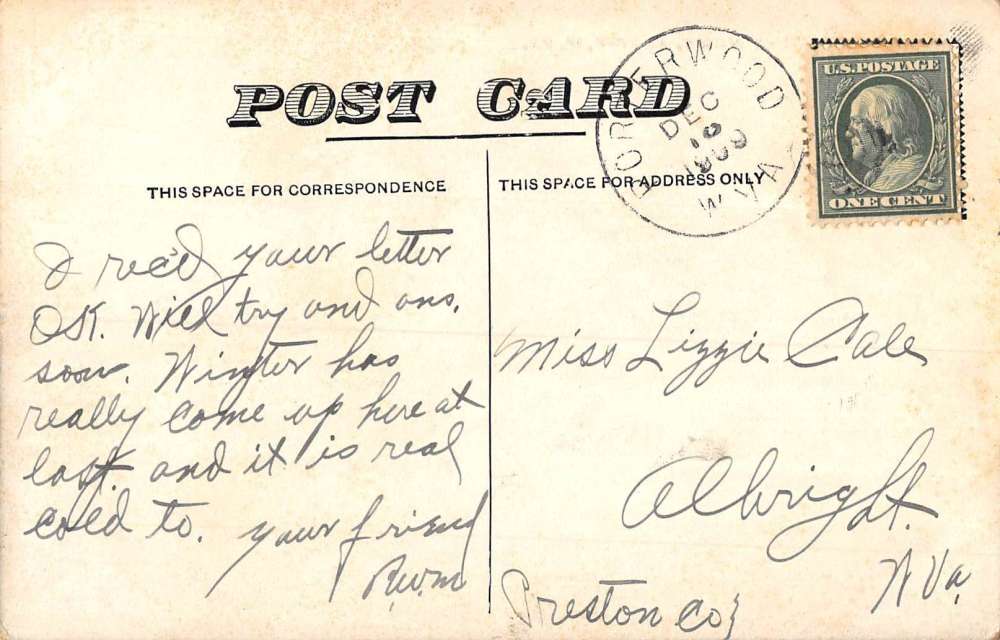 POST CARD
THIS SPACE FOR CORRESPONDENCE
I rec'd your letter
OK. Will try and ans.
soon. Winter has
really come up here at
last. and it is real
cold to. your friend
R.W.M
THIS SPACE FOR ADDRESS ONLY
PORTERWOOD
DEC
1909
W.VA
U.S. POSTAGE
ONE CENT
Miss Lizzie Cale
Albright.
W Va,
Preston Co}